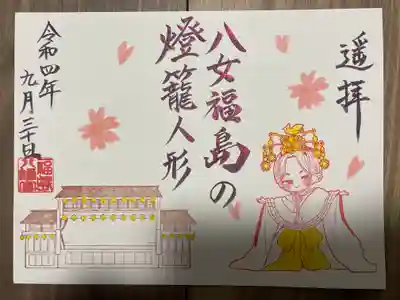 遥拝
八女福島の
燈籠人形
令和四年
九月三十日